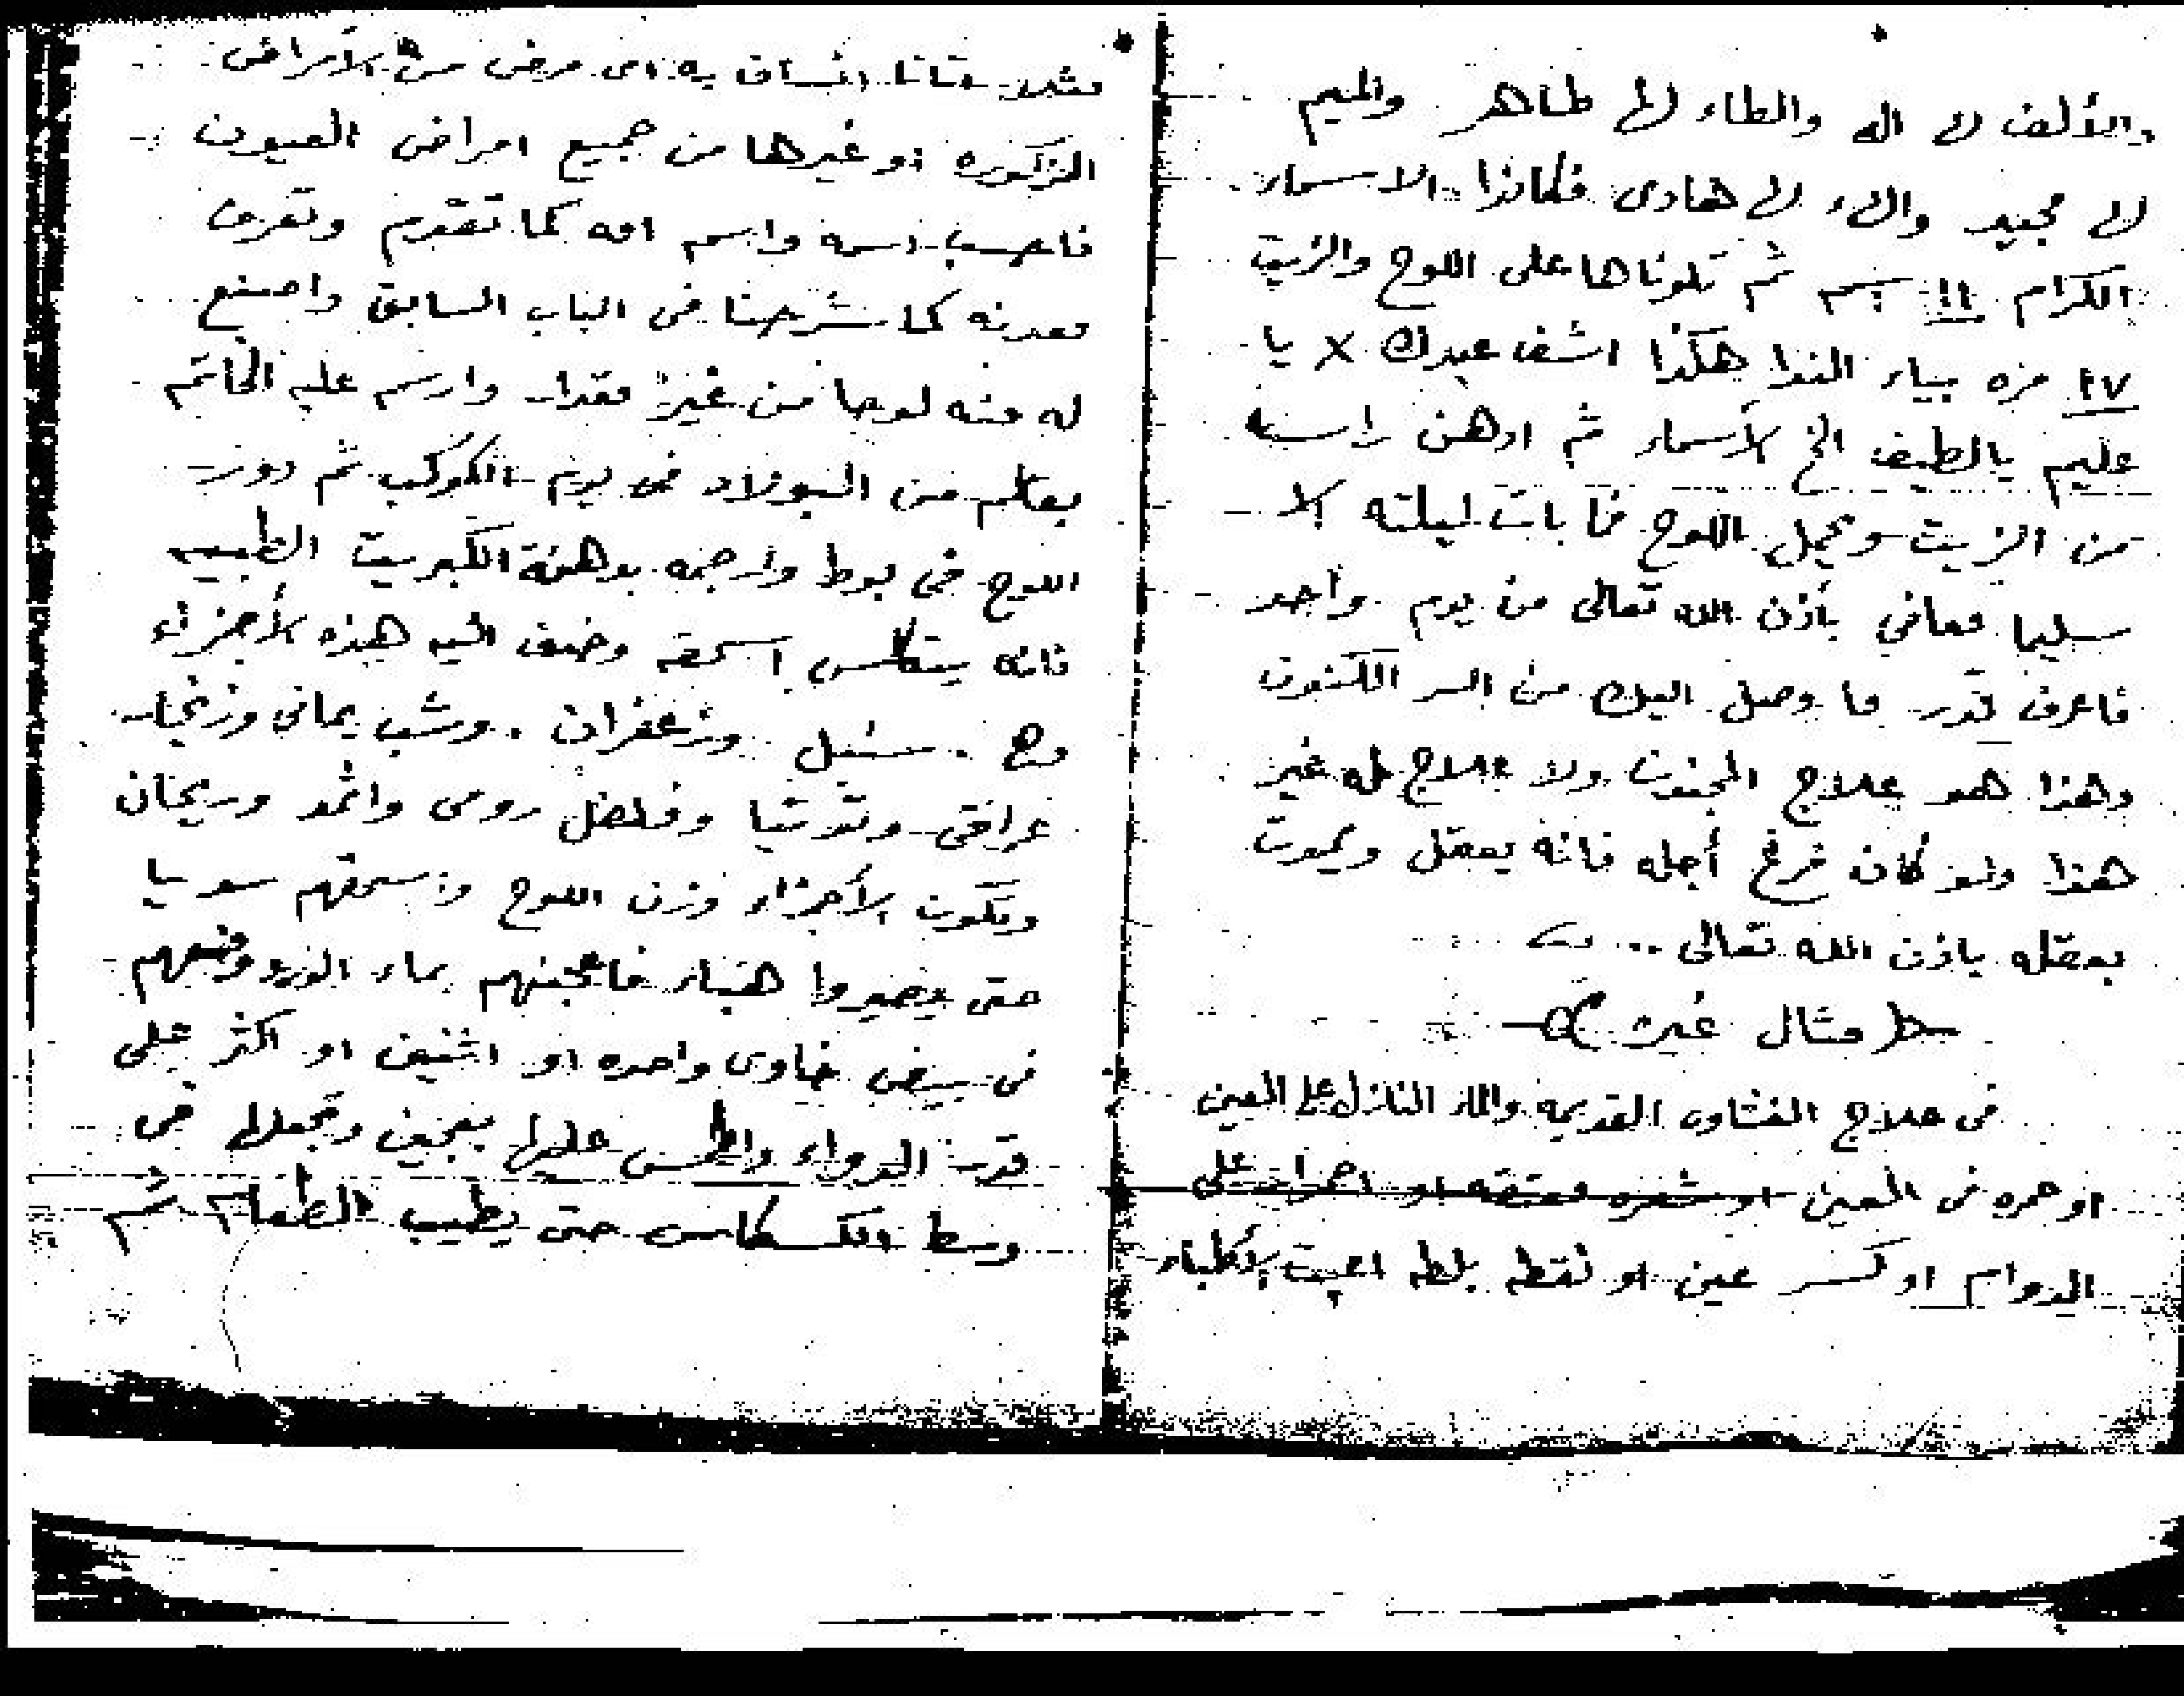 والألف لها اله والطاء لها طاهر والميم
لها مجيد والهاء لها هادى فكانوا الاسماء
الكرام ١١ اسم ثم تلوناها على اللوح والزيت
٢٧ مره بياء الندا هكذا اشف عبدك × يا
عليم يالطيف الخ الأسماء ثم ادهن راسه
من الزيت ويحمل اللوح فما بات ليلته الا
سليما معافى بأذن الله تعالى من يوم واحد
فاعرف قدر ما وصل اليك من السر المكنون
وهذا هو علاج المجنون ولا علاج له غير
هذا ولو كان فرغ أجله فانه يعقل ويموت
بعقله باذن الله تعالى ..
مثال غيره
فى علاج الغشاوه القديمه والماء النازل على العين
او حمره فى العين او شعره او احمرار على
الدوام او كسر عين او نقطه بلطه اعيت الأطباء
مثلا اتانا انسان به اى مرض من هالأمراض
المذكوره او غيرها من جميع امراض العيون
فاحسب اسمه واسم امه كما تقدم وتعرف
معدنه كما شرحنا فى الباب السابق واصنع
له منه لوحا من غير مقدار وارسم عليه الخاتم
بقلم من البولاد فى يوم الكوكب ثم دور
اللوح فى بوط وارجمه بدهنة الكبريت الطبيه
فانه يتكلس اسحقه وضف اليه هذه الأجزاء
وهى . سنبل وزعفران . وشب يمانى وزنجار
عراقى وتوتيا وفلفل رومى واثمد وريحان
وتكون الأجزاء وزن اللوح واسحقهم سويا
حتى يصيروا هباء فاعجنهم بماء الورد وضعهم
فى بيض خاوى واحده او اثنين او اكثر على
قدر الدواء واطمس عليها بعجين وتجعلها فى
وسط الكسكاس حتى يطيب الطعام ثم